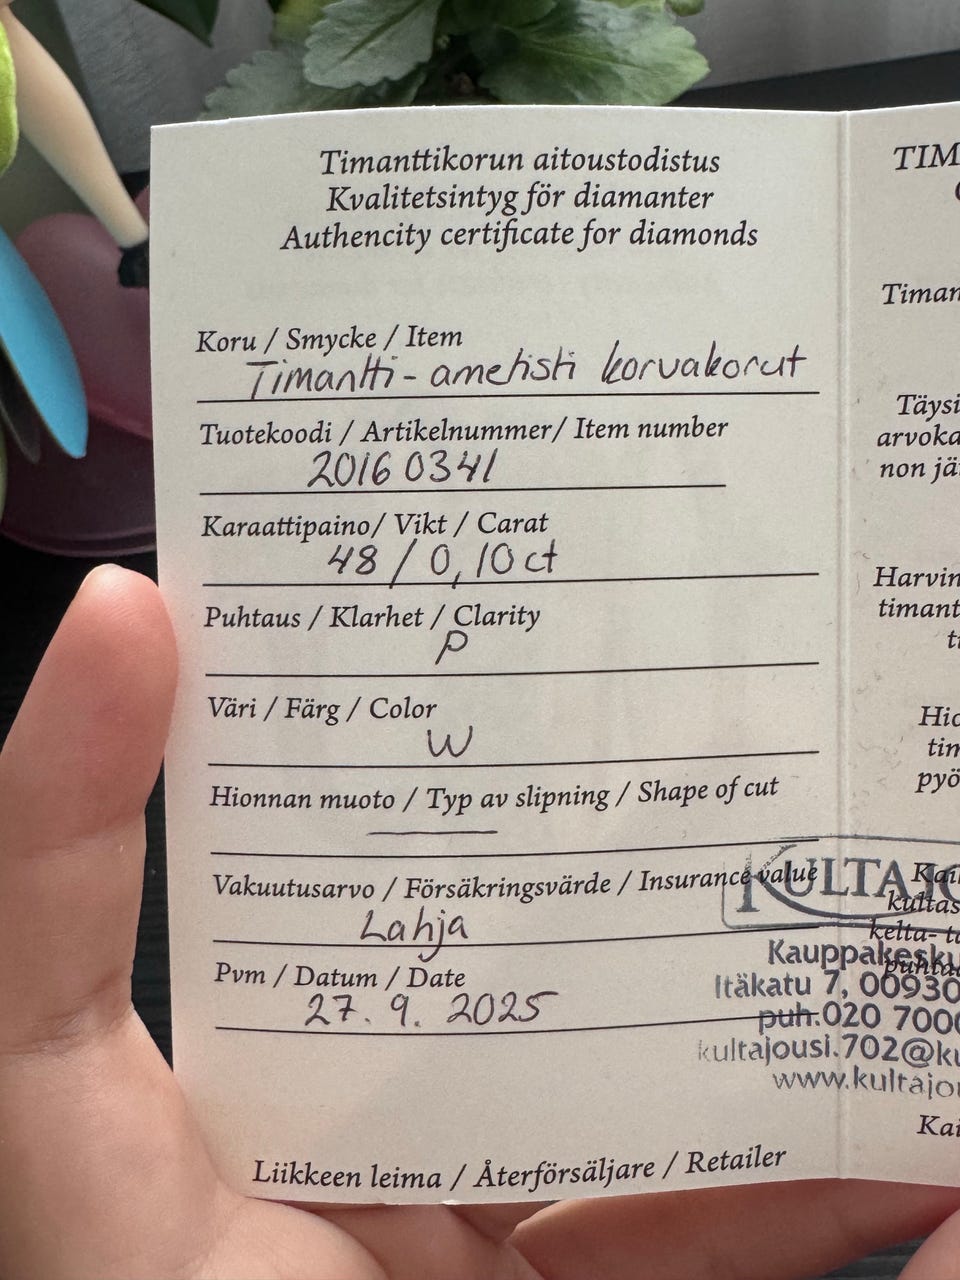 Timanttikorun aitoustodistus
Kvalitetsintyg för diamanter
Authencity certificate for diamonds
Koru / Smycke / Item
Timantti - ametisti korvakorut
Tuotekoodi / Artikelnummer/ Item number
2016 0341
Karaattipaino/ Vikt / Carat
48 / 0,10 ct
Puhtaus / Klarhet / Clarity
P
Väri / Färg / Color
W
Hionnan muoto / Typ av slipning / Shape of cut
Vakuutusarvo / Försäkringsvärde / Insurance value
Lahja
Pvm / Datum / Date
27. 9. 2025
Liikkeen leima / Återförsäljare / Retailer
KULTAJO
Kauppakesku
Itäkatu 7, 00930
puh.020 7000
kultajousi.702@ku
www.kultajou
TIM
Timan
Täysi
arvoka
non jä
Harvin
timant
ti
Hio
tim
pyö
Kai
kultas
kelta- ta
puhta
Kai